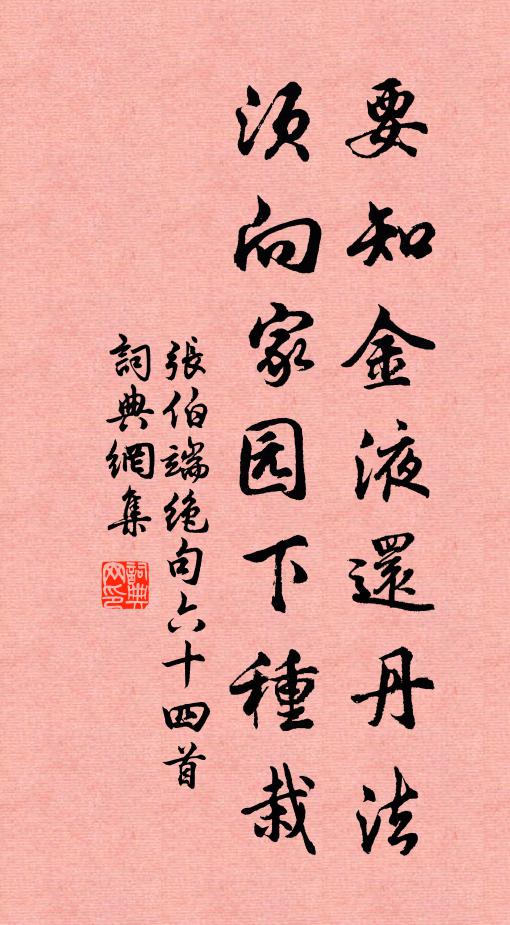 要知金液還丹法
須向家园下種栽
張伯端絶句六十四首
詞典網集
詞典
网印